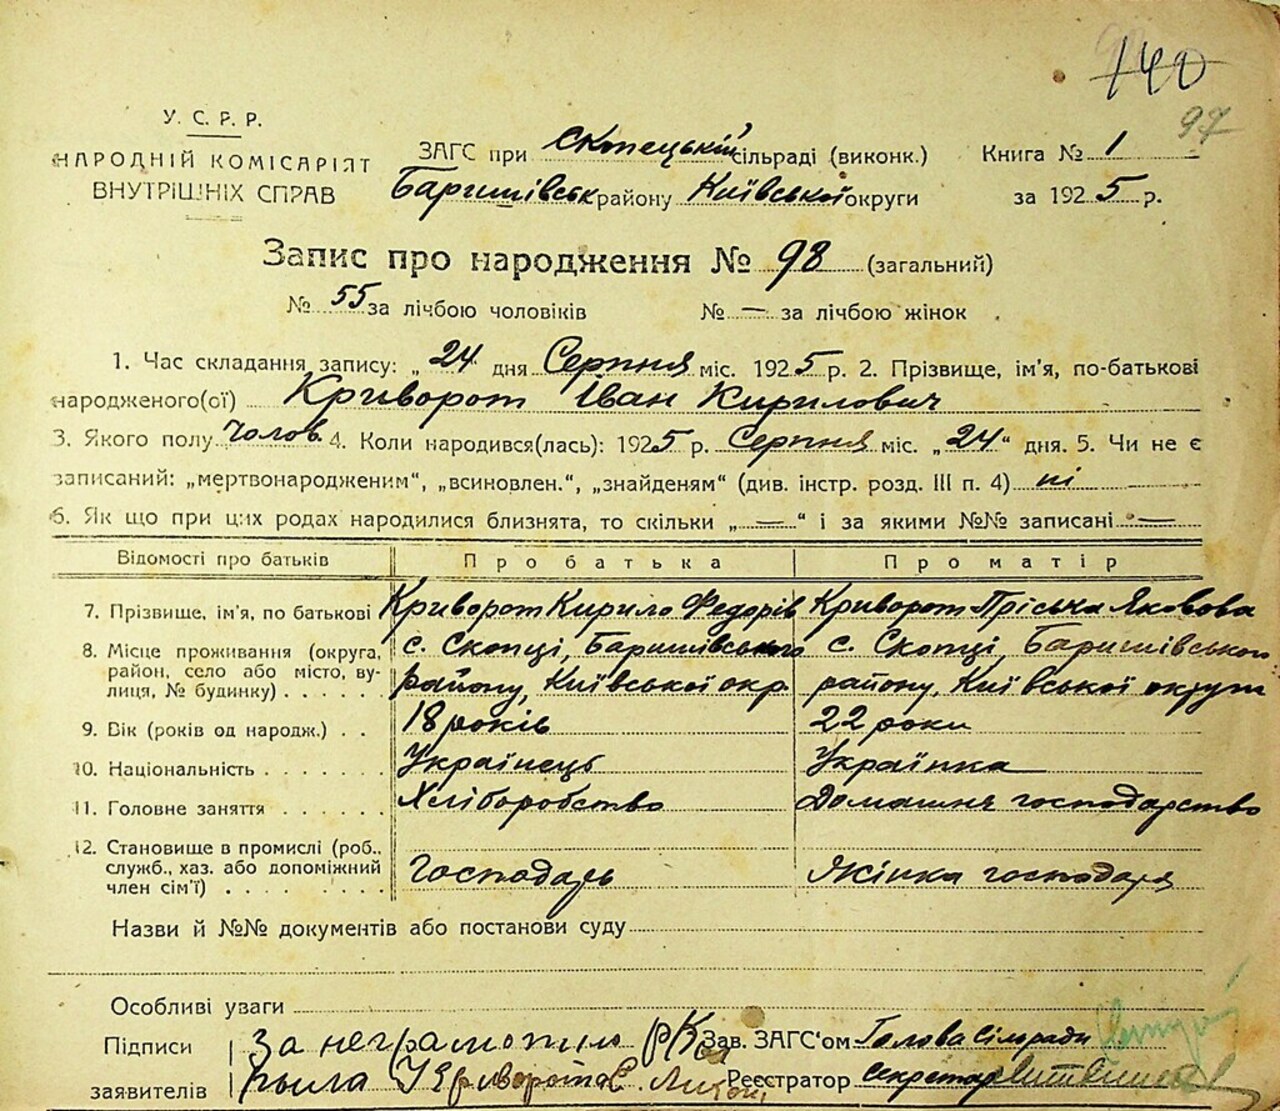 140
97
У. С. Р. Р.
НАРОДНІЙ КОМІСАРІЯТ
ВНУТРІШНІХ СПРАВ
ЗАГС при Скопецькій сільраді (виконк.) Книга № 1
Баришівськ району Київської округи за 1925 р.
Запис про народження № 98 (загальний)
№ 55 за лічбою чоловіків № — за лічбою жінок
1. Час складання запису: „24 дня Серпня міс. 1925 р. 2. Прізвище, ім'я, по-батькові
народженого(ої) Криворот Іван Кирилович
3. Якого полу Чолов. 4. Коли народився(лась): 1925 р. Серпня міс. „24“ дня. 5. Чи не є
записаний: „мертвонародженим“, „всиновлен.“, „знайденям“ (див. інстр. розд. III п. 4) ні
6. Як що при цих родах народилися близнята, то скільки „—“ і за якими №№ записані —
Відомості про батьків Про батька Про матір
7. Прізвище, ім'я, по батькові Криворот Кирило Федорів Криворот Пріська Яковова
8. Місце проживання (округа, с. Скопці, Баришівського с. Скопці, Баришівського
район, село або місто, ву-
лиця, № будинку) району, Київської окр. району, Київської округи
9. Вік (років од народж.) 18 років 22 роки
10. Національність Українець Українка
11. Головне заняття Хліборобство Домашнє господарство
12. Становище в промислі (роб.,
служб., хаз. або допоміжний
член сім'ї) Господарь Жінка господаря
Назви й №№ документів або постанови суду
Особливі уваги
Підписи За неграмотню Зав. ЗАГС'ом Голова Сільради
заявителів Реєстратор Секретар